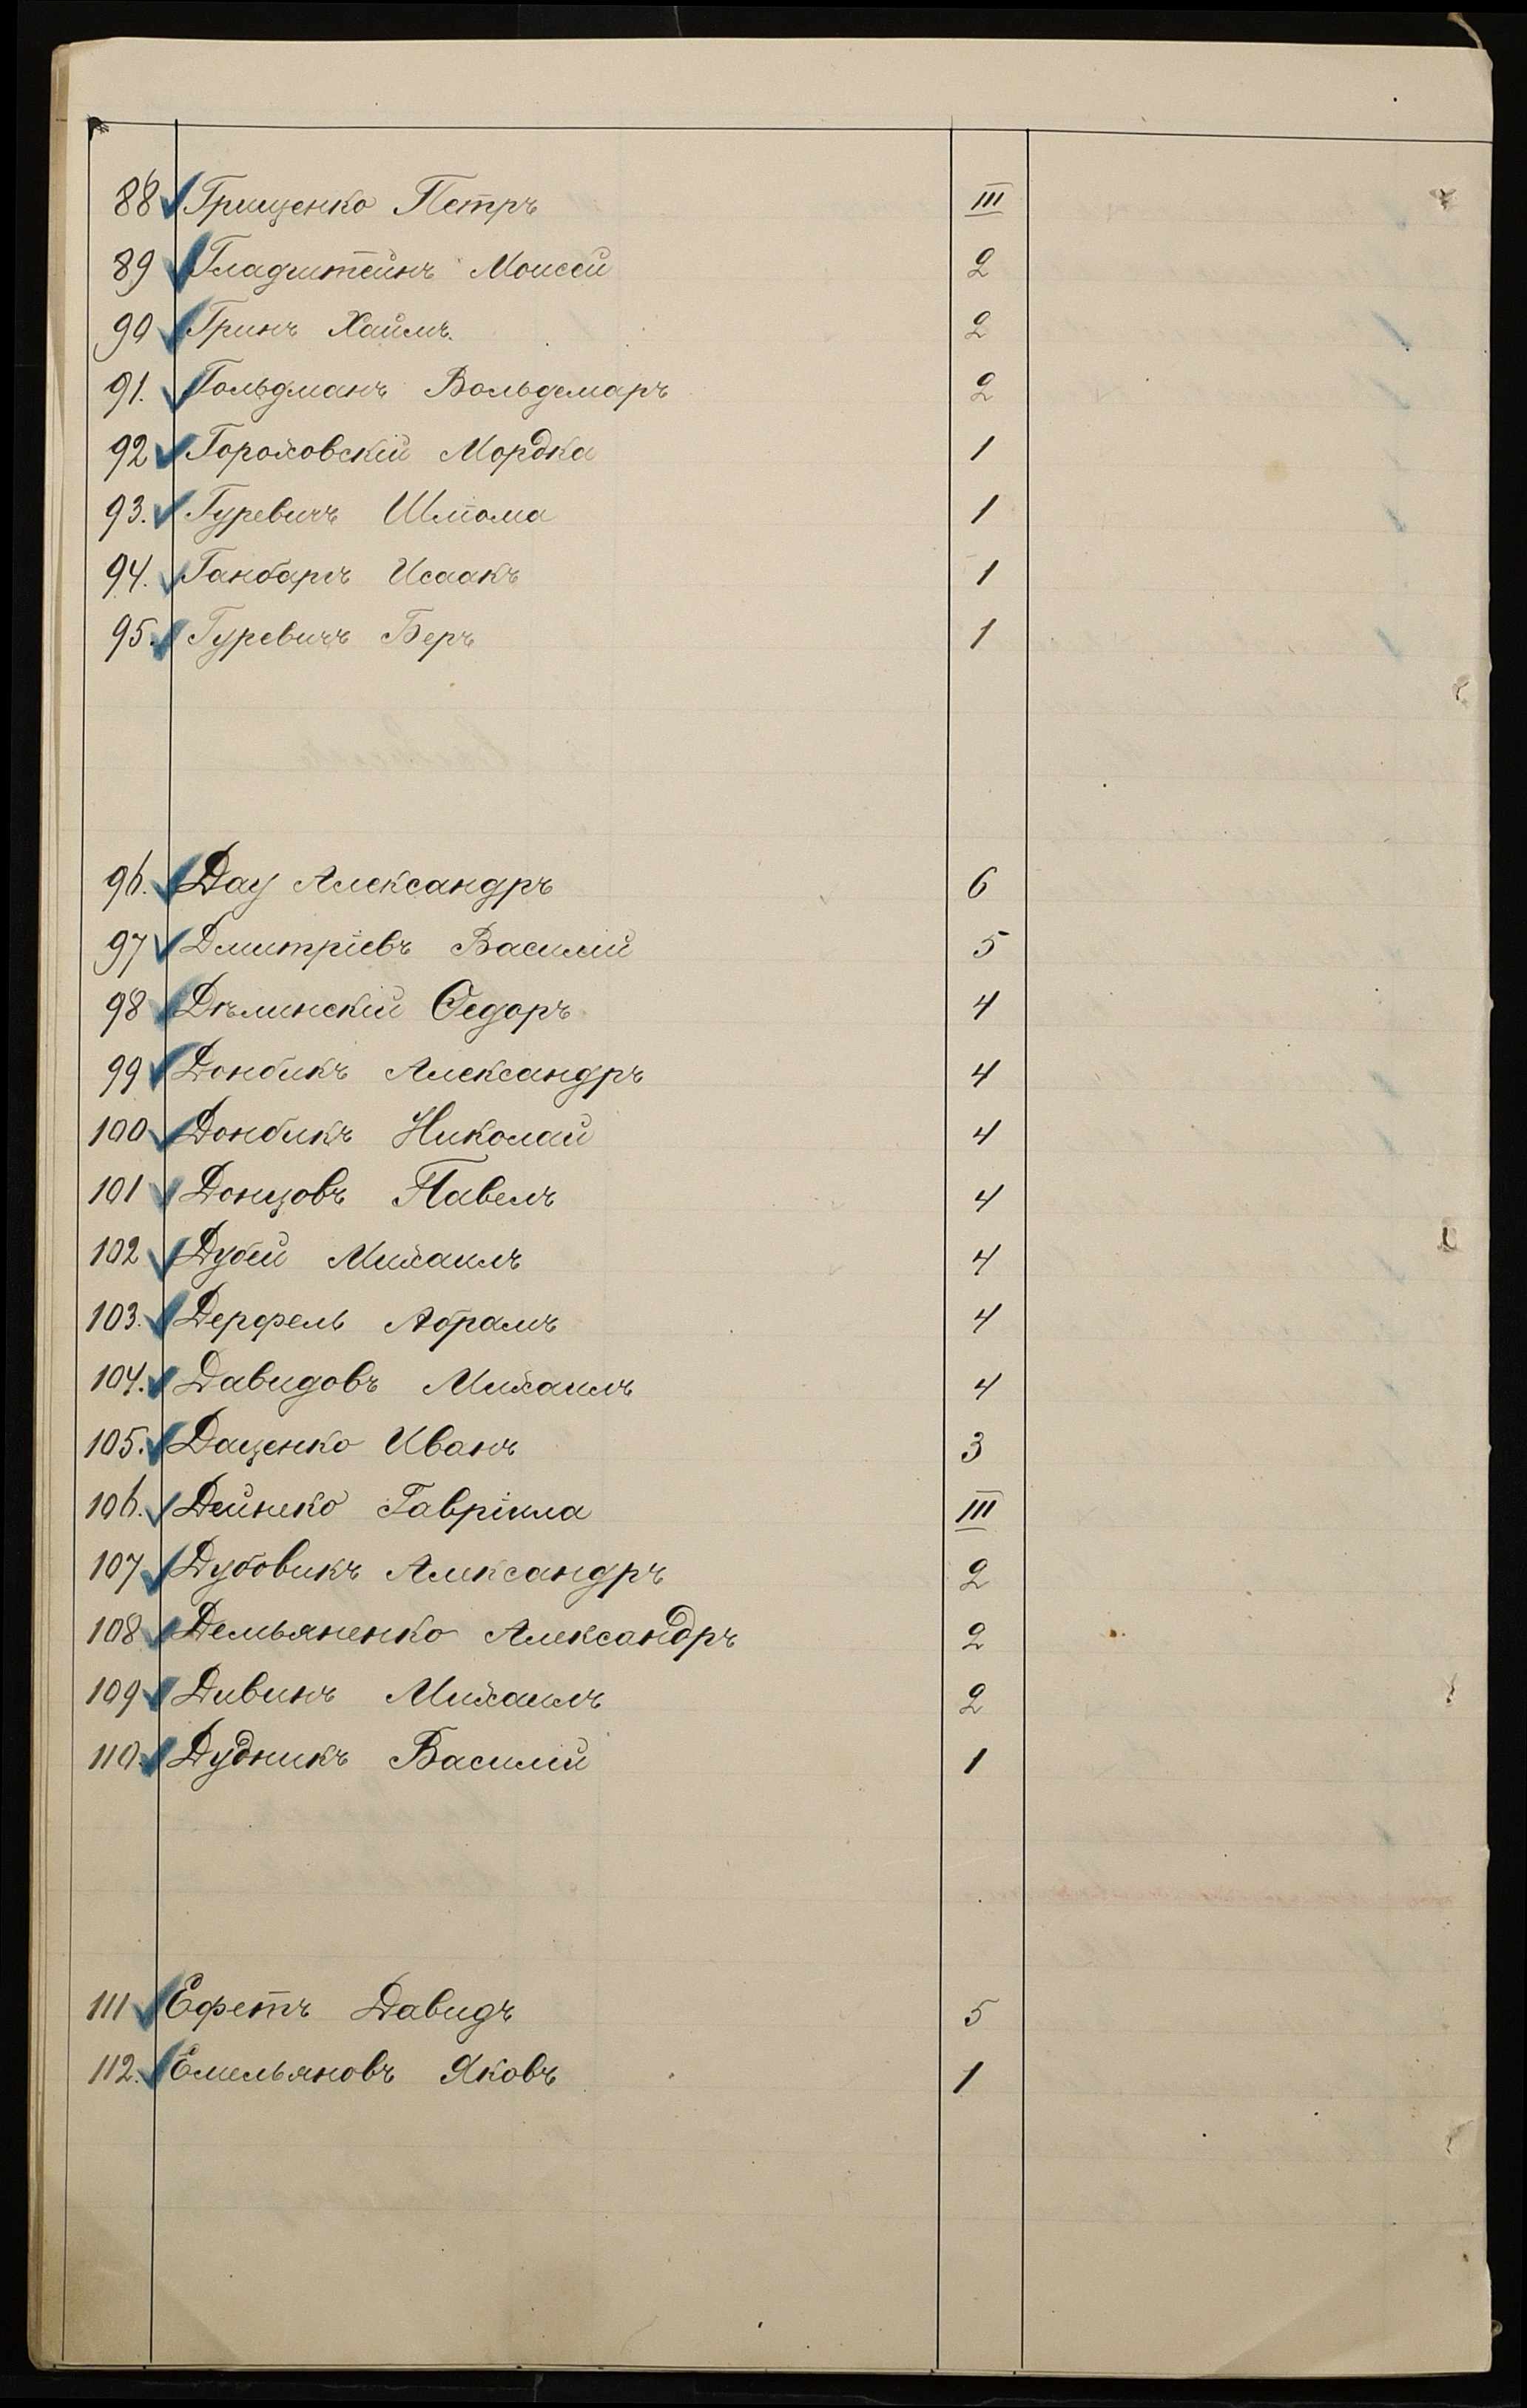 88 Грищенко Петръ III
89 Гладштейнъ Моисей 2
90 Гринъ Хаимъ. 2
91. Гольдманъ Вольдемаръ 2
92 Гороховскій Мордка 1
93. Гуревичъ Шлiома 1
94. Ганбаргъ Исаакъ 1
95. Гуревичъ Беръ 1
96. Дау Александръ 6
97 Дмитріевъ Василій 5
98 Дѣлинскій Ѳедоръ 4
99 Донбикъ Александръ 4
100 Донбикъ Николай 4
101 Донцовъ Павелъ 4
102 Дубей Михаилъ 4
103. Дерфель Абрамъ 4
104. Давидовъ Михаилъ 4
105. Даценко Иванъ 3
106. Дейнеко Гавріила III
107 Дубовикъ Александръ 2
108 Демьяненко Александръ 2
109 Дивинъ Михаилъ 2
110. Дудникъ Василій 1
111 Ефетъ Давидъ 5
112. Емельяновъ Яковъ 1